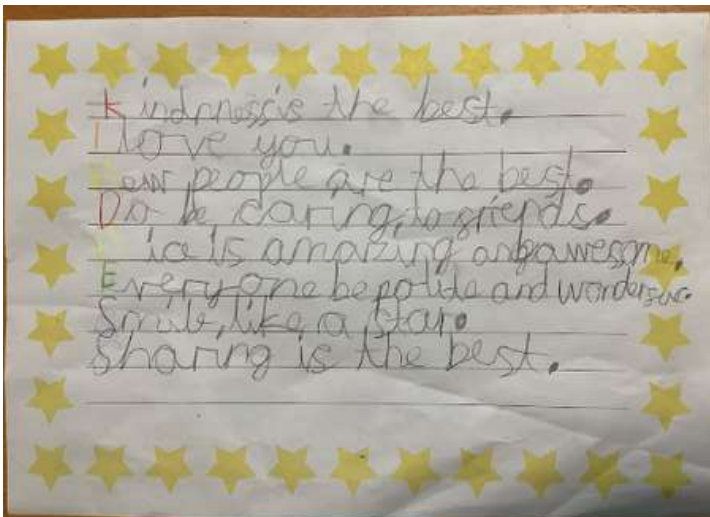 Kindnness is the best.
I love you.
New people are the best.
Do be caring, to friends.
Nice is amazing and awesome.
Everyone be polite and wonderful.
Smile, like a star.
Sharing is the best.